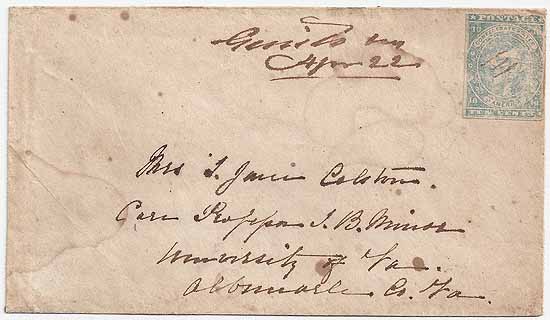 Apr 22
POSTAGE
10 10
CONFEDERATE STATES
OF AMERICA
10 10
TEN CENTS
Mrs S. Jane Colston.
Care Professor J. B. Minor
University of Va.
Albemarle Co. Va.